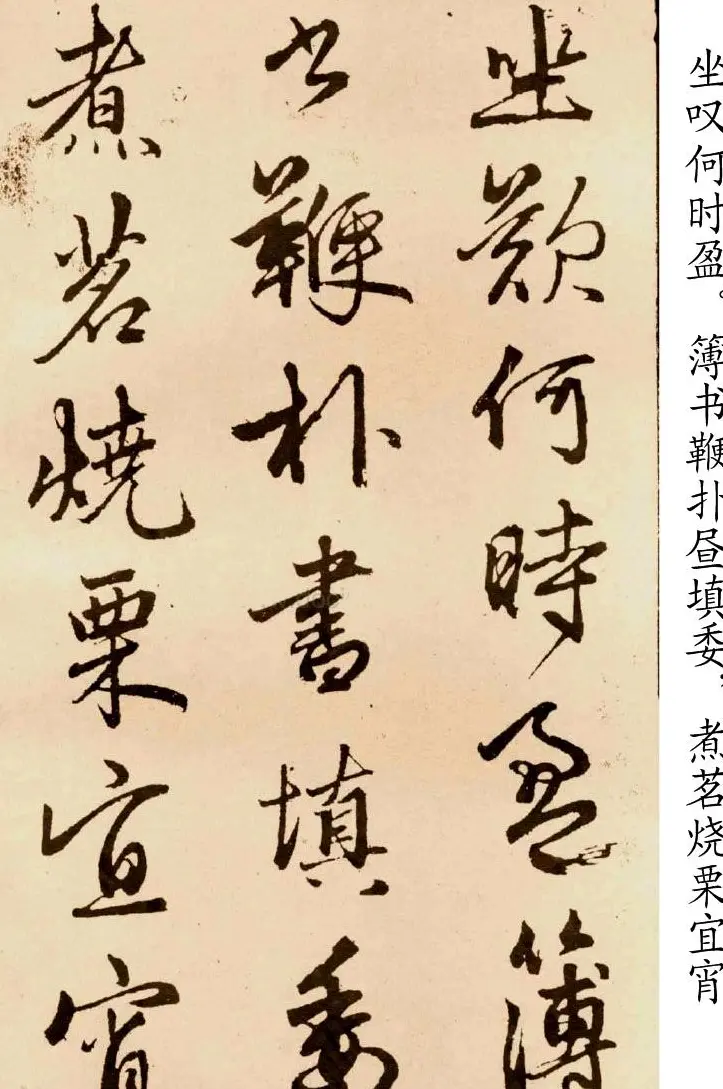 坐叹何时盈。簿书鞭扑昼填委,煮茗烧栗宜宵
坐歎何時盈簿
书鞭朴晝填委
煮茗燒栗宜宵